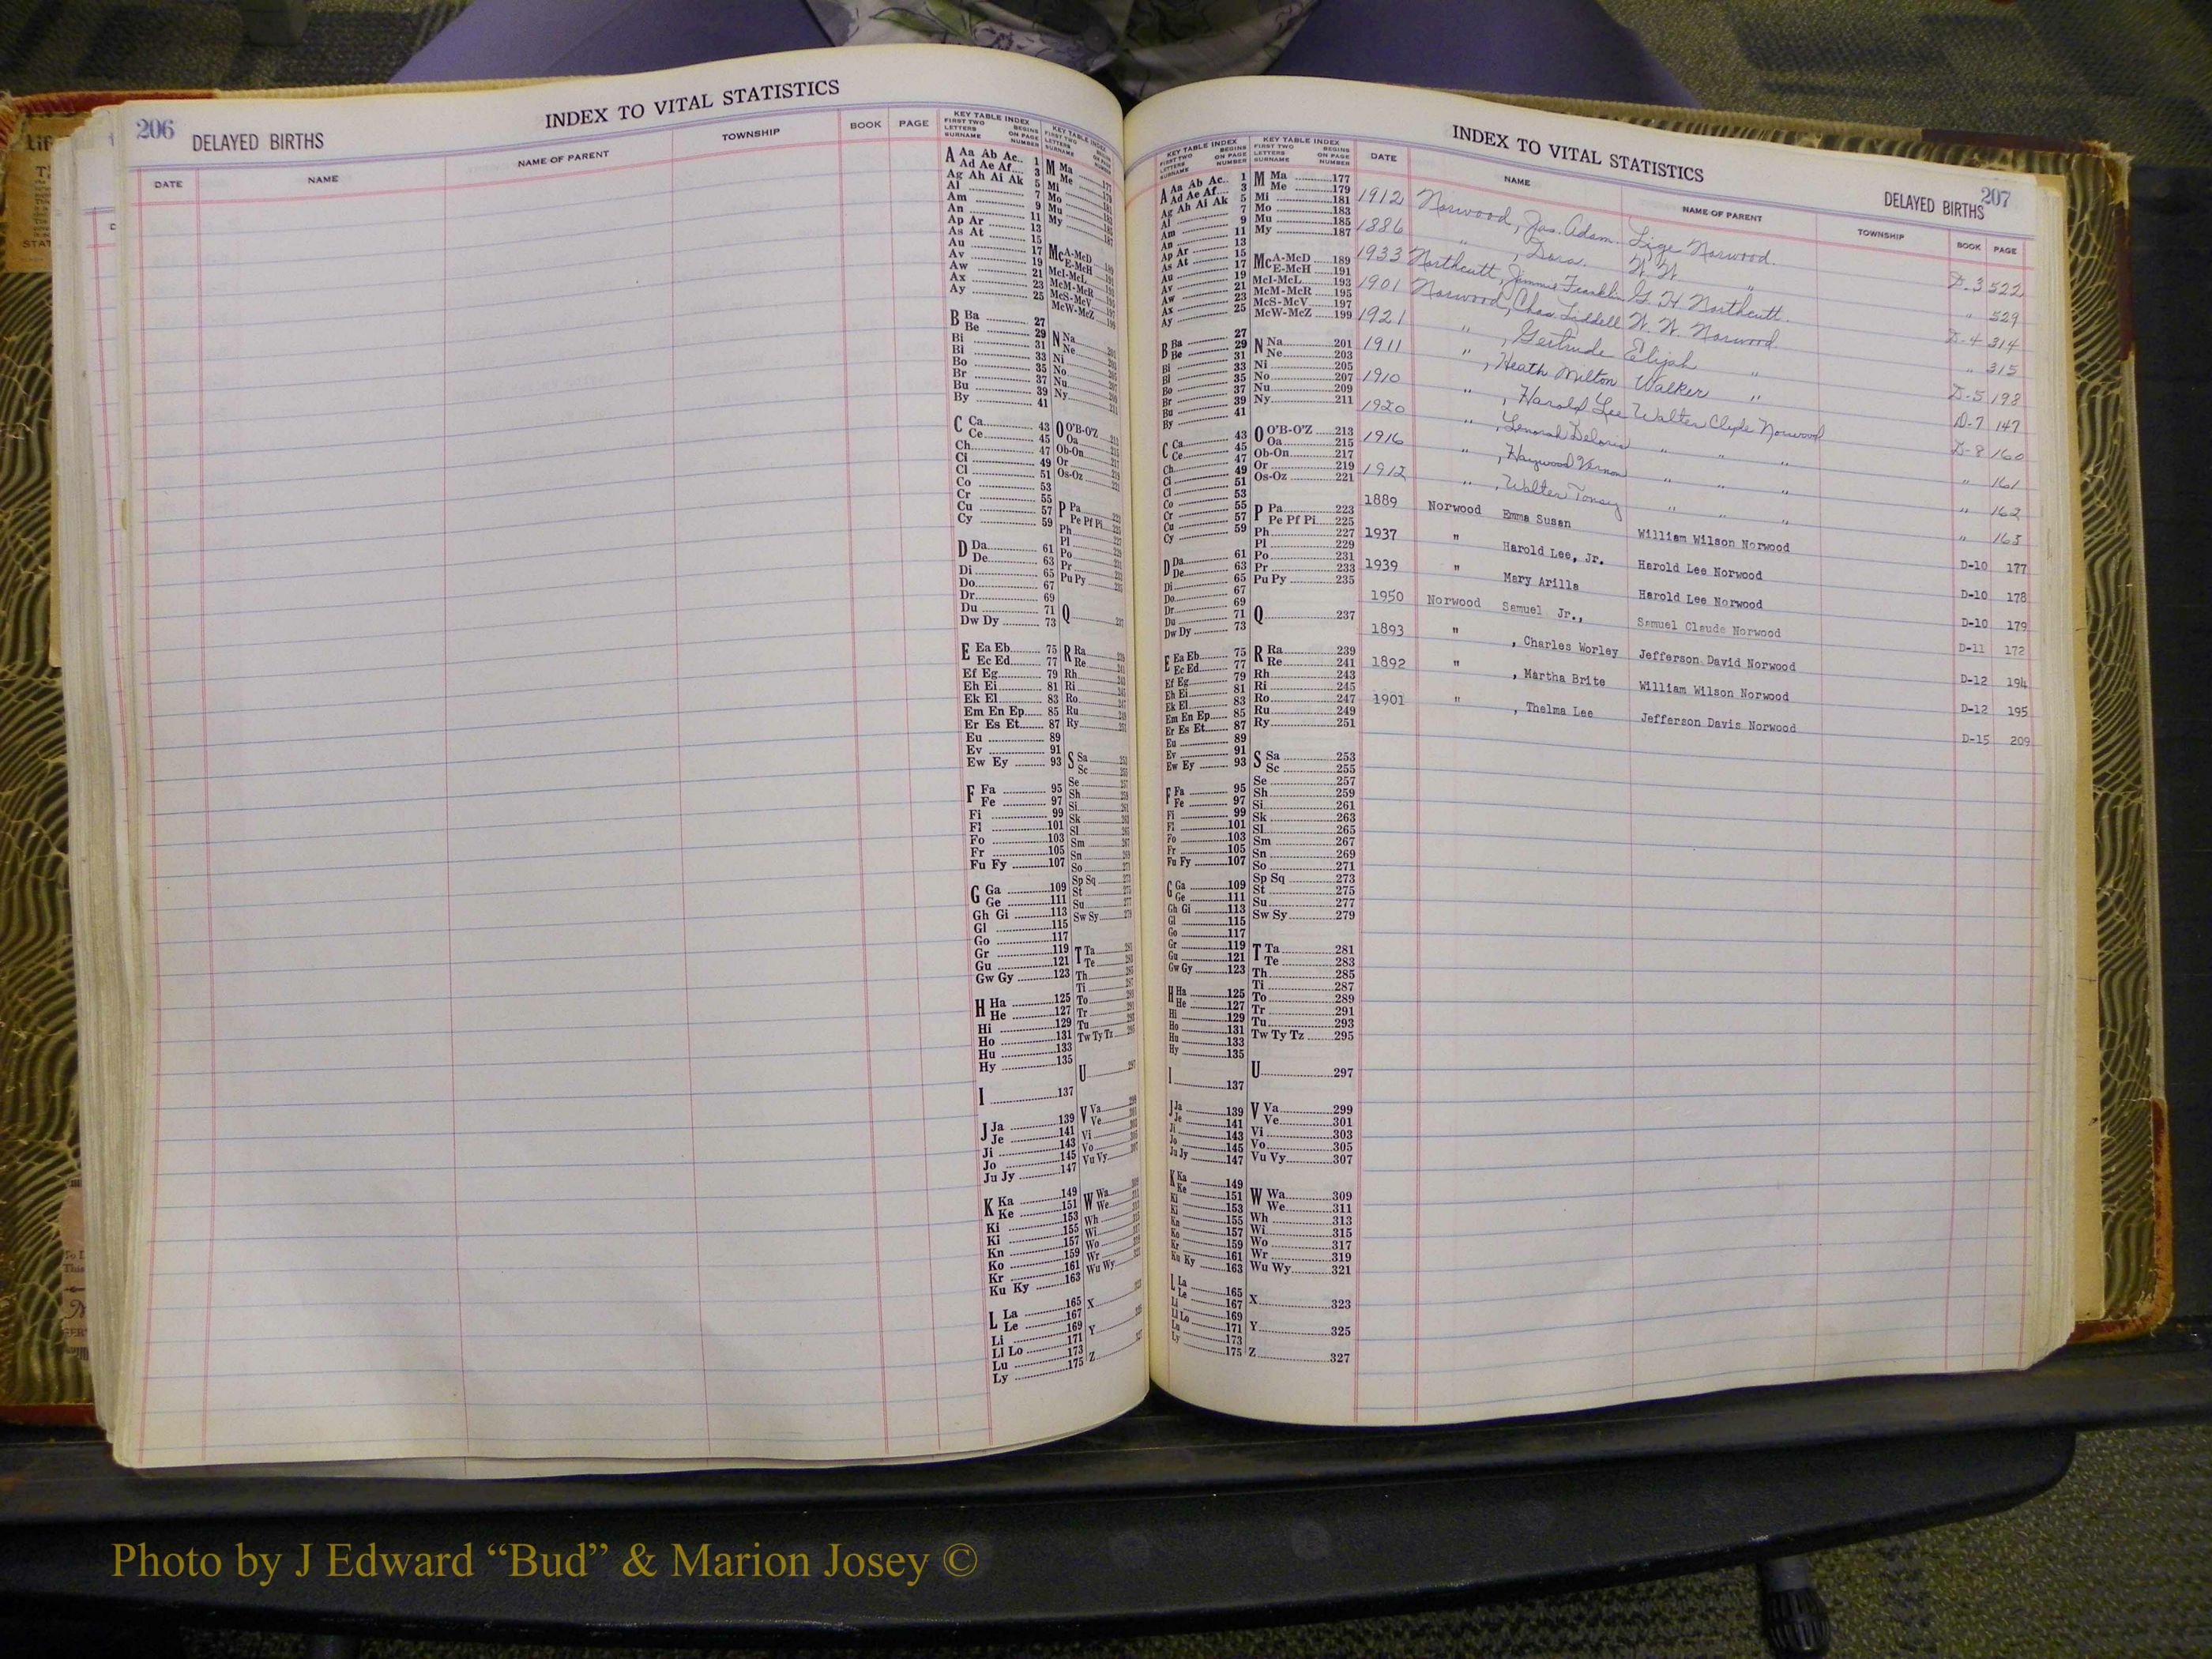 206
DELAYED BIRTHS
INDEX TO VITAL STATISTICS
DATE NAME NAME OF PARENT TOWNSHIP BOOK PAGE
KEY TABLE INDEX
FIRST TWO LETTERS SURNAME BEGINS ON PAGE NUMBER
INDEX TO VITAL STATISTICS
DELAYED BIRTHS
207
DATE NAME NAME OF PARENT TOWNSHIP BOOK PAGE
1912 Norwood, Jas. Adam Lige Norwood D-3 522
1886 " , Dora W. W. " " 529
1933 Northcutt, Jimmie Franklin G. H. Northcutt D-4 314
1901 Norwood, Chas. Liddell W. W. Norwood " 315
1921 " , Gertrude Elijah " D-5 198
1911 " , Heath Milton Walker " D-7 147
1910 " , Harold Lee Walter Clyde Norwood D-8 160
1920 " , Lenorah Deloris " " " " 161
1916 " , Haywood Vernon " " " " 162
1912 " , Walter " " " " 163
1889 Norwood Emma Susan William Wilson Norwood D-10 177
1937 " Harold Lee, Jr. Harold Lee Norwood D-10 178
1939 " Mary Arilla Harold Lee Norwood D-10 179
1950 Norwood Samuel Jr., Samuel Claude Norwood D-11 172
1893 " , Charles Worley Jefferson David Norwood D-12 194
1892 " , Martha Brite William Wilson Norwood D-12 195
1901 " , Thelma Lee Jefferson Davis Norwood D-15 209
KEY TABLE INDEX
FIRST TWO LETTERS SURNAME BEGINS ON PAGE NUMBER
A Aa Ab Ac 1
Ad Ae Af 3
Ag Ah Ai Ak 5
Al 7
Am 9
An 11
Ap Ar 13
As At 15
Au 17
Av 19
Aw 21
Ax 23
Ay 25
B Ba 27
Be 29
Bi 31
Bl 33
Bo 35
Br 37
Bu 39
By 41
C Ca 43
Ce 45
Ch 47
Ci 49
Cl 51
Co 53
Cr 55
Cu 57
Cy 59
D Da 61
De 63
Di 65
Do 67
Dr 69
Du 71
Dw Dy 73
E Ea Eb 75
Ec Ed 77
Ef Eg 79
Eh Ei 81
Ek El 83
Em En Ep 85
Er Es Et 87
Eu 89
Ev 91
Ew Ey 93
F Fa 95
Fe 97
Fi 99
Fl 101
Fo 103
Fr 105
Fu Fy 107
G Ga 109
Ge 111
Gh Gi 113
Gl 115
Go 117
Gr 119
Gu 121
Gw Gy 123
H Ha 125
He 127
Hi 129
Ho 131
Hu 133
Hy 135
I 137
J Ja 139
Je 141
Ji 143
Jo 145
Ju Jy 147
K Ka 149
Ke 151
Ki 153
Ki 155
Kn 157
Ko 159
Kr 161
Ku Ky 163
L La 165
Le 167
Li 169
Ll Lo 171
Lu 173
Ly 175
M Ma 177
Me 179
Mi 181
Mo 183
Mu 185
My 187
McA-McD 189
E-McH 191
McI-McL 193
McM-McR 195
McS-McV 197
McW-McZ 199
N Na 201
Ne 203
Ni 205
No 207
Nu 209
Ny 211
O O'B-O'Z 213
Oa 215
Ob-On 217
Or 219
Os-Oz 221
P Pa 223
Pe Pf Pi 225
Ph 227
Pl 229
Po 231
Pr 233
Pu Py 235
Q 237
R Ra 239
Re 241
Rh 243
Ri 245
Ro 247
Ru 249
Ry 251
S Sa 253
Sc 255
Se 257
Sh 259
Si 261
Sk 263
Sl 265
Sm 267
Sn 269
So 271
Sp Sq 273
St 275
Su 277
Sw Sy 279
T Ta 281
Te 283
Th 285
Ti 287
To 289
Tr 291
Tu 293
Tw Ty Tz 295
U 297
V Va 299
Ve 301
Vi 303
Vo 305
Vu Vy 307
W Wa 309
We 311
Wh 313
Wi 315
Wo 317
Wr 319
Wu Wy 321
X 323
Y 325
Z 327
Photo by J Edward “Bud” & Marion Josey ©